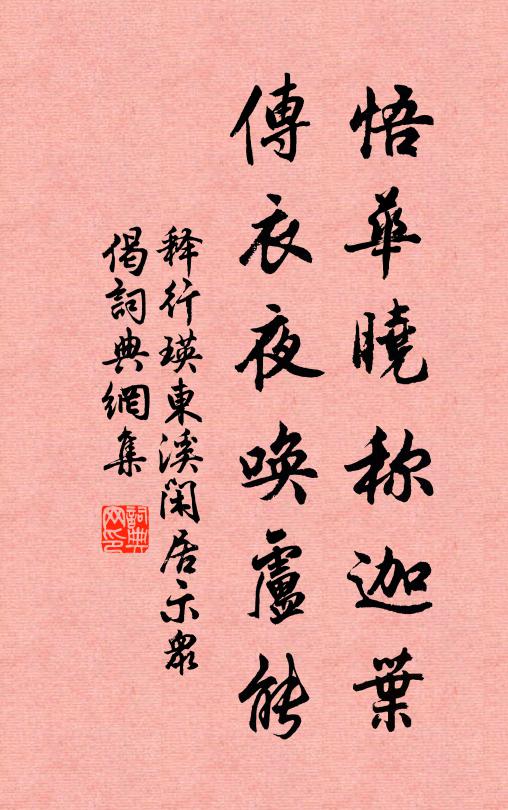 悟華曉称迦葉
傳衣夜唤盧能
释行瑛東溪閑居示眾
偈詞典網集
詞典
网印